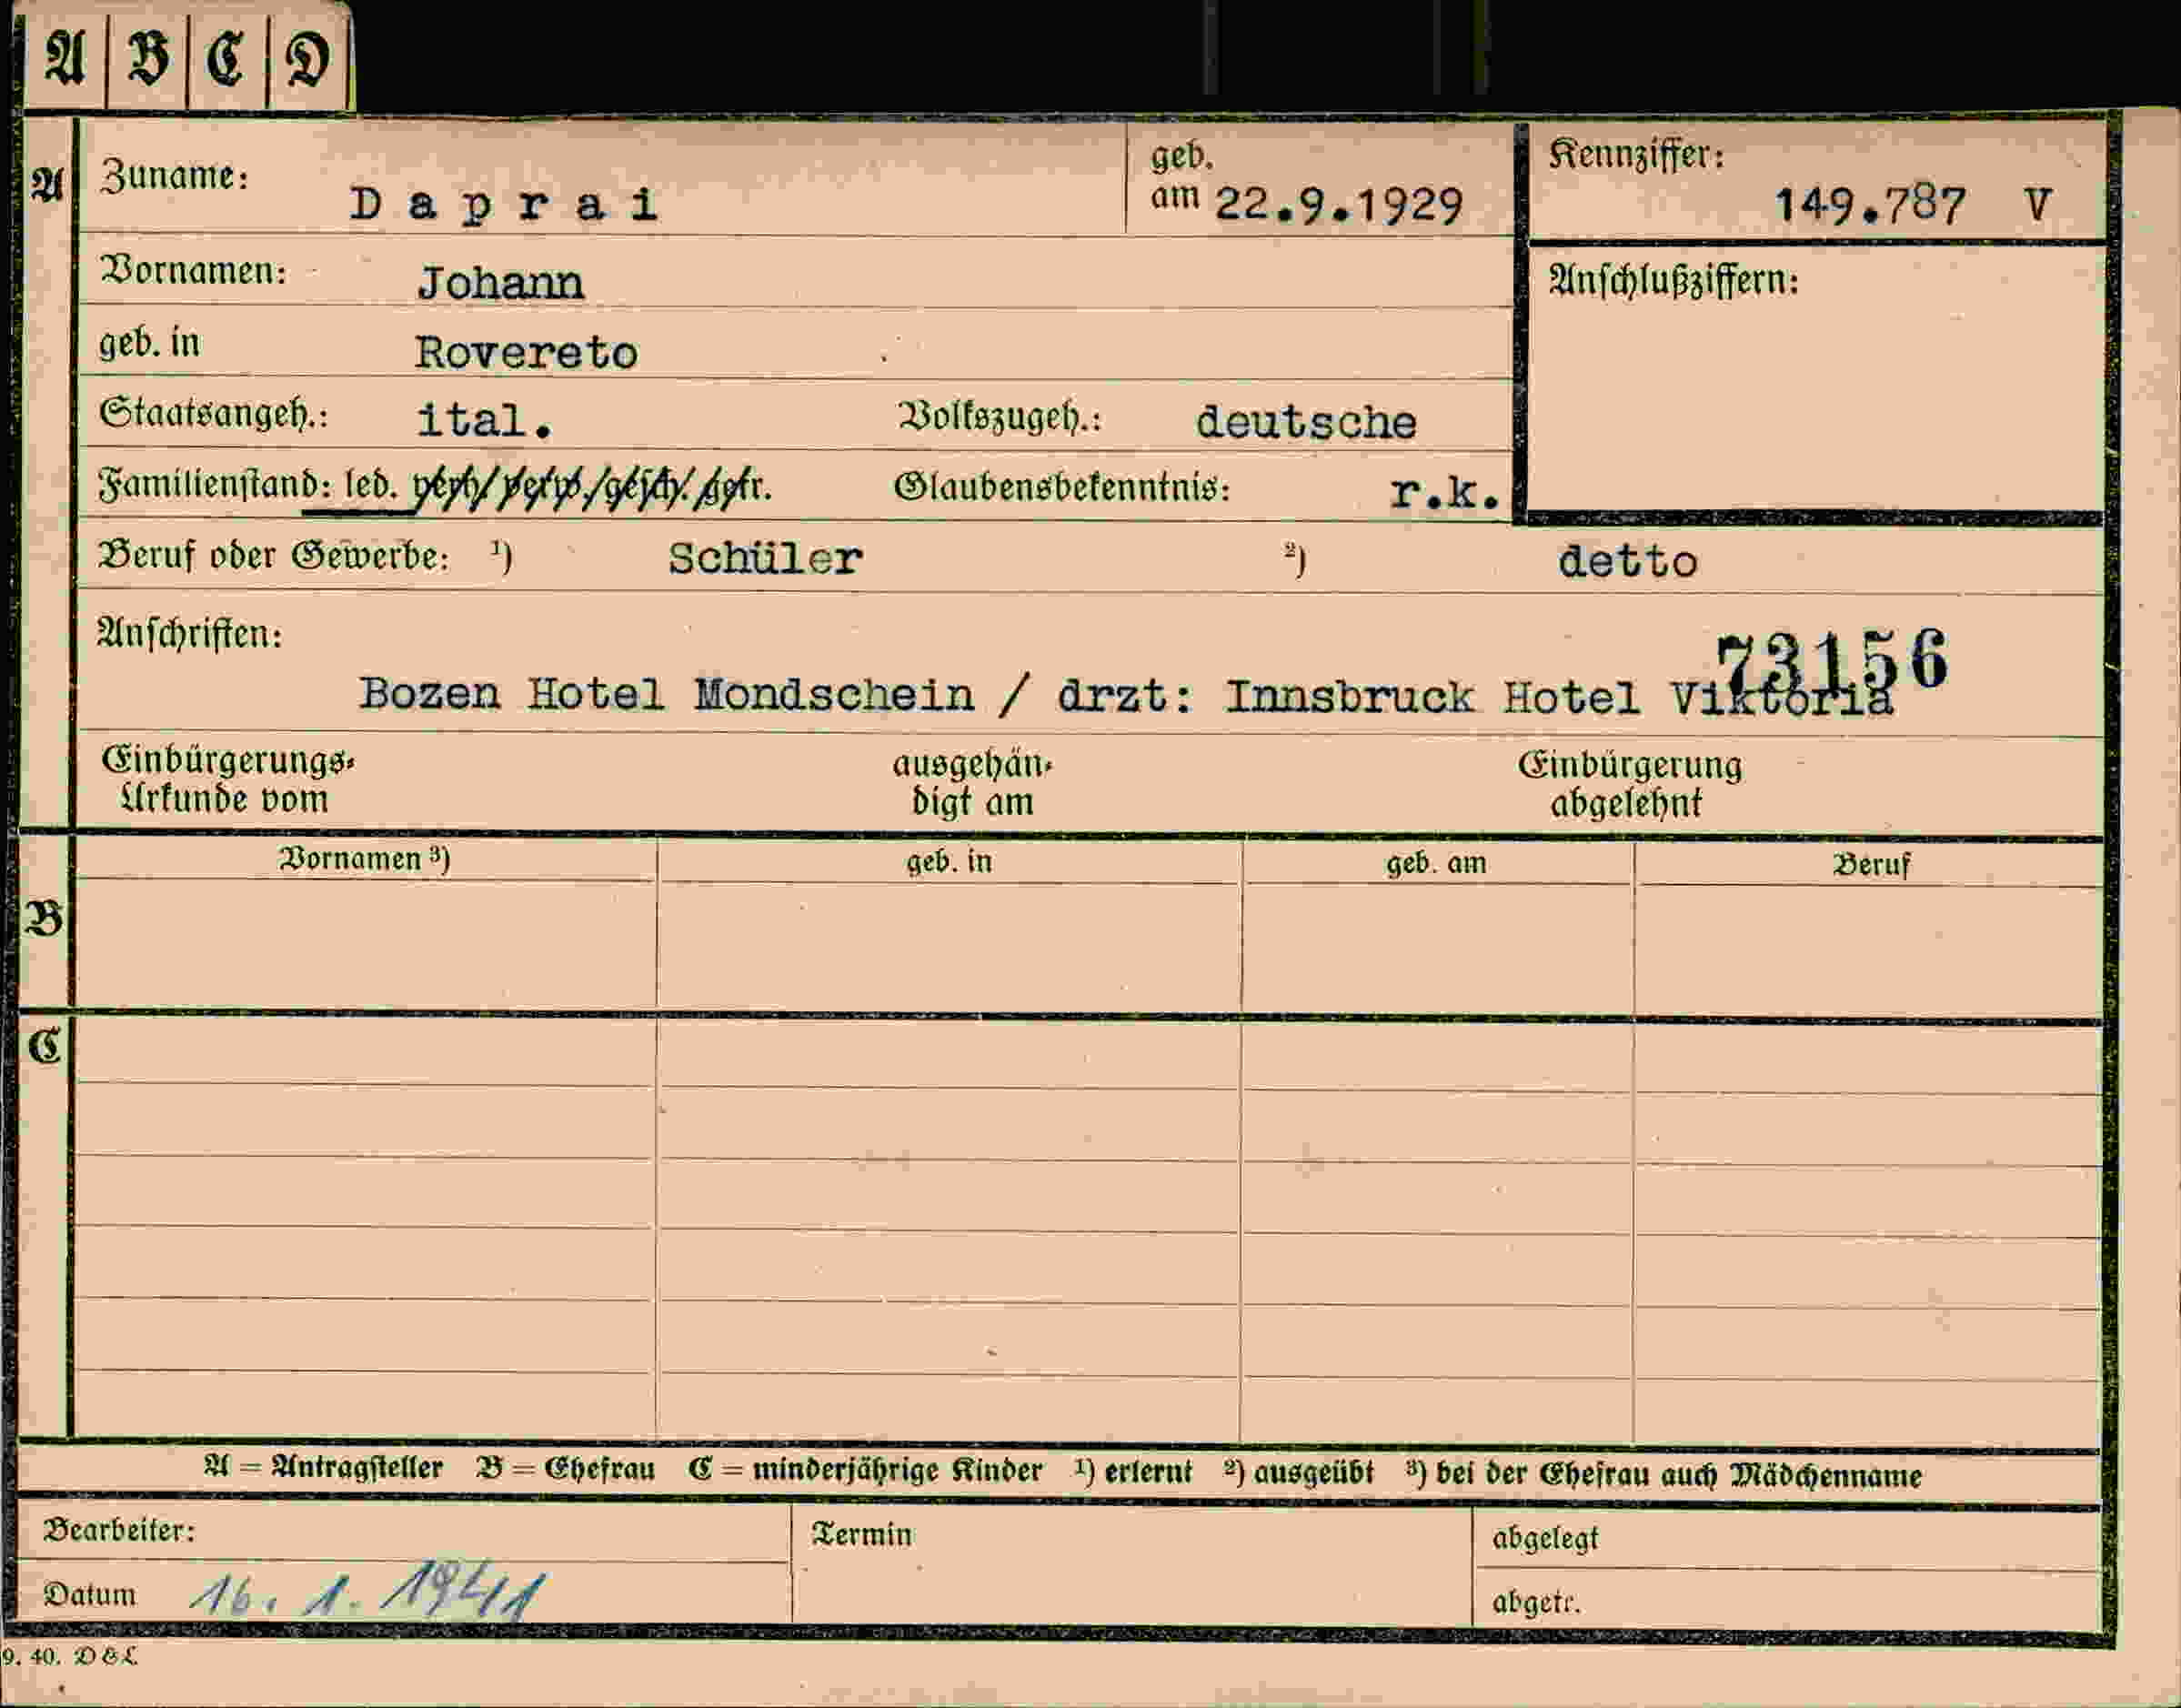 A B C D
A Zuname: Daprai geb. am 22.9.1929 Kennziffer: 149.787 V
Vornamen: Johann Anschlußziffern:
geb. in Rovereto
Staatsangeh.: ital. Volkszugeh.: deutsche
Familienstand: led. verh./verw./gesch./getr. Glaubensbekenntnis: r.k.
Beruf oder Gewerbe: ¹) Schüler ²) detto
Anschriften: 73156
Bozen Hotel Mondschein / drzt: Innsbruck Hotel Viktoria
Einbürgerungs- ausgehän- Einbürgerung
Urkunde vom digt am abgelehnt
B Vornamen ³) geb. in geb. am Beruf
C
A = Antragsteller B = Ehefrau C = minderjährige Kinder ¹) erlernt ²) ausgeübt ³) bei der Ehefrau auch Mädchenname
Bearbeiter: Termin abgelegt
Datum 16. 1. 1941 abgetr.
9. 40. D & L